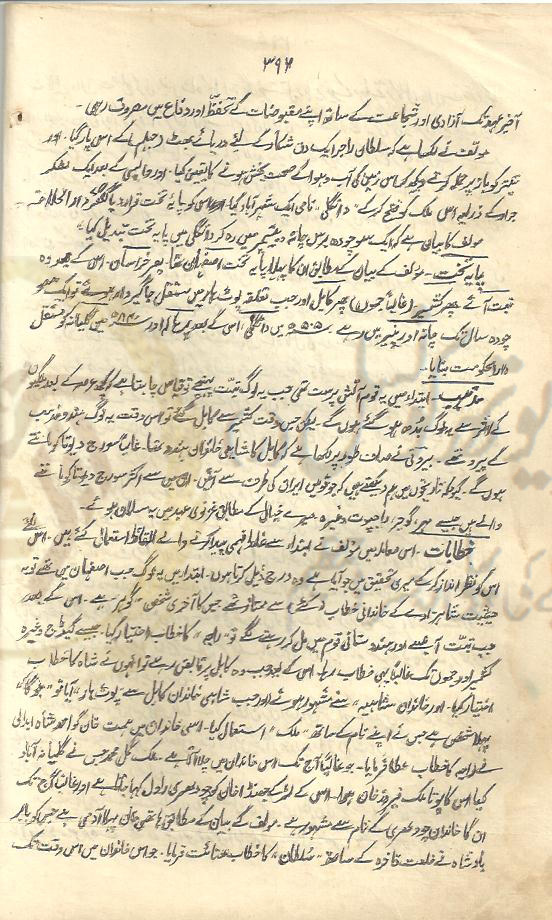 ۳۹۶
آخر عہد تک آزادی اور شجاعت کے ساتھ اپنے مقبوضات کے تحفظ اور دفاع میں مصروف رہی۔
مولف نے لکھا ہے کہ سلطان راجر ایک دن شکار کے لئے دریائے بھٹ (جہلم) کے اس پار گیا۔ اور
تیتر کو باز پر حملہ کرتے دیکھ کر اس زمین کی آب و ہوا کے صحت بخش ہونے کا یقین کیا۔ اور واپسی کے بعد ایک لشکر
جرار کے ذریعہ اس ملک کو فتح کر کے "دانگلی" نامی ایک شہر آباد کیا اور اس کو پایہ تخت قرار دیا
مولف کا بیان ہے کہ ایک سو چودہ برس میں رہ کر دانگلی میں پایہ تخت تبدیل کیا۔
پایہ تخت۔ مولف کے بیان کے مطابق ان کا پہلا پایہ تخت اصفہان تھا پھر خراسان۔ اس کے بعد وہ
تبت آئے پھر کشمیر (غالباً جموں) پھر کابل اور جب تعلقہ پوٹھوہار میں مستقل جاگیردار ہوئے تو ایک سو
چودہ سال تک میں رہے میں دانگلی اسی کے بعد اور میں گلیانہ کو مستقل
دارالحکومت بنایا۔
مذہب۔ ابتداء میں یہ قوم آتش پرست تھی جب یہ لوگ تبت پہنچے تو قیاس چاہتا ہے کہ کچھ عرصہ کے بعد
کے اثر سے یہ لوگ بدھ ہو گئے ہوں گے۔ لیکن جس وقت کشمیر سے کابل گئے تو اس وقت یہ لوگ ہندو مذہب
کے پیرو تھے۔ بیرونی نے صاف طور پر لکھا ہے کہ کابل کا شاہی خاندان ہندو تھا۔ غالباً سورج دیوتا کو مانتے
ہوں گے۔ کیونکہ تاریخوں میں ہم دیکھتے ہیں کہ جو قومیں ایران کی طرف سے آئیں۔ ان میں سے اکثر سورج دیوتا کو مانتے
والے ہیں جیسے مہر، گوجر، راجپوت وغیرہ۔ میرے خیال کے مطابق غزنوی عہد میں یہ مسلمان ہوئے۔
خطابات۔ اس معاملہ میں مولف نے ابتداء سے غلط فہمی پیدا کرنے والے الفاظ استعمال کئے ہیں۔ اس لئے
اس کو نظر انداز کر کے میری تحقیق میں جو آیا ہے وہ درج ذیل کرتا ہوں۔ ابتداء میں یہ لوگ جب اصفہان میں تھے تو بہ
حیثیت شاہزادے کے خاندانی خطاب سے ممتاز تھے جس کا آخری شخص "گوہر" ہے۔ اس کے بعد
جب تبت آئے اور ہندوستانی قوم میں مل کر رہنے لگے تو "راجہ" کا خطاب اختیار کیا۔ جیسے وغیرہ
کشمیر اور جموں تک غالباً یہی خطاب رہا۔ اس کے بعد جب وہ کابل پر قابض رہے تو انہوں نے شاہ کا خطاب
اختیار کیا۔ اور خاندان "شاہیہ" سے مشہور ہوئے اور جب شاہی خاندان کابل سے "پوٹھوہار" آیا تو
پہلا شخص ہے جس نے اپنے نام کے ساتھ "ملک" استعمال کیا۔ اسی خاندان میں ہمت خان کو احمد شاہ ابدالی
نے راجہ کا خطاب عطا فرمایا۔ جو غالباً آج تک اس خاندان میں چلا آتا ہے۔ ملک گل محمد جس نے گلیانہ آباد
کیا اس کا پوتا ملک فیروز خان ہوا۔ اس کے لڑکے جھنڈا خان کو چودھری راول کہا جاتا ہے اور غالباً آج تک
ان کا خاندان چودھری کے نام سے مشہور ہے۔ مولف کے بیان کے مطابق ہاتھی خان پہلا آدمی ہے جس کو بابر
بادشاہ نے خلعت فاخرہ کے ساتھ "سلطان" کا خطاب عنایت فرمایا۔ جو اس خاندان میں اس وقت تک